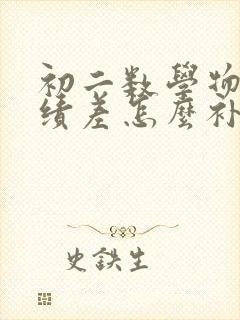 初二数學物
績差怎麼补
史鉄生